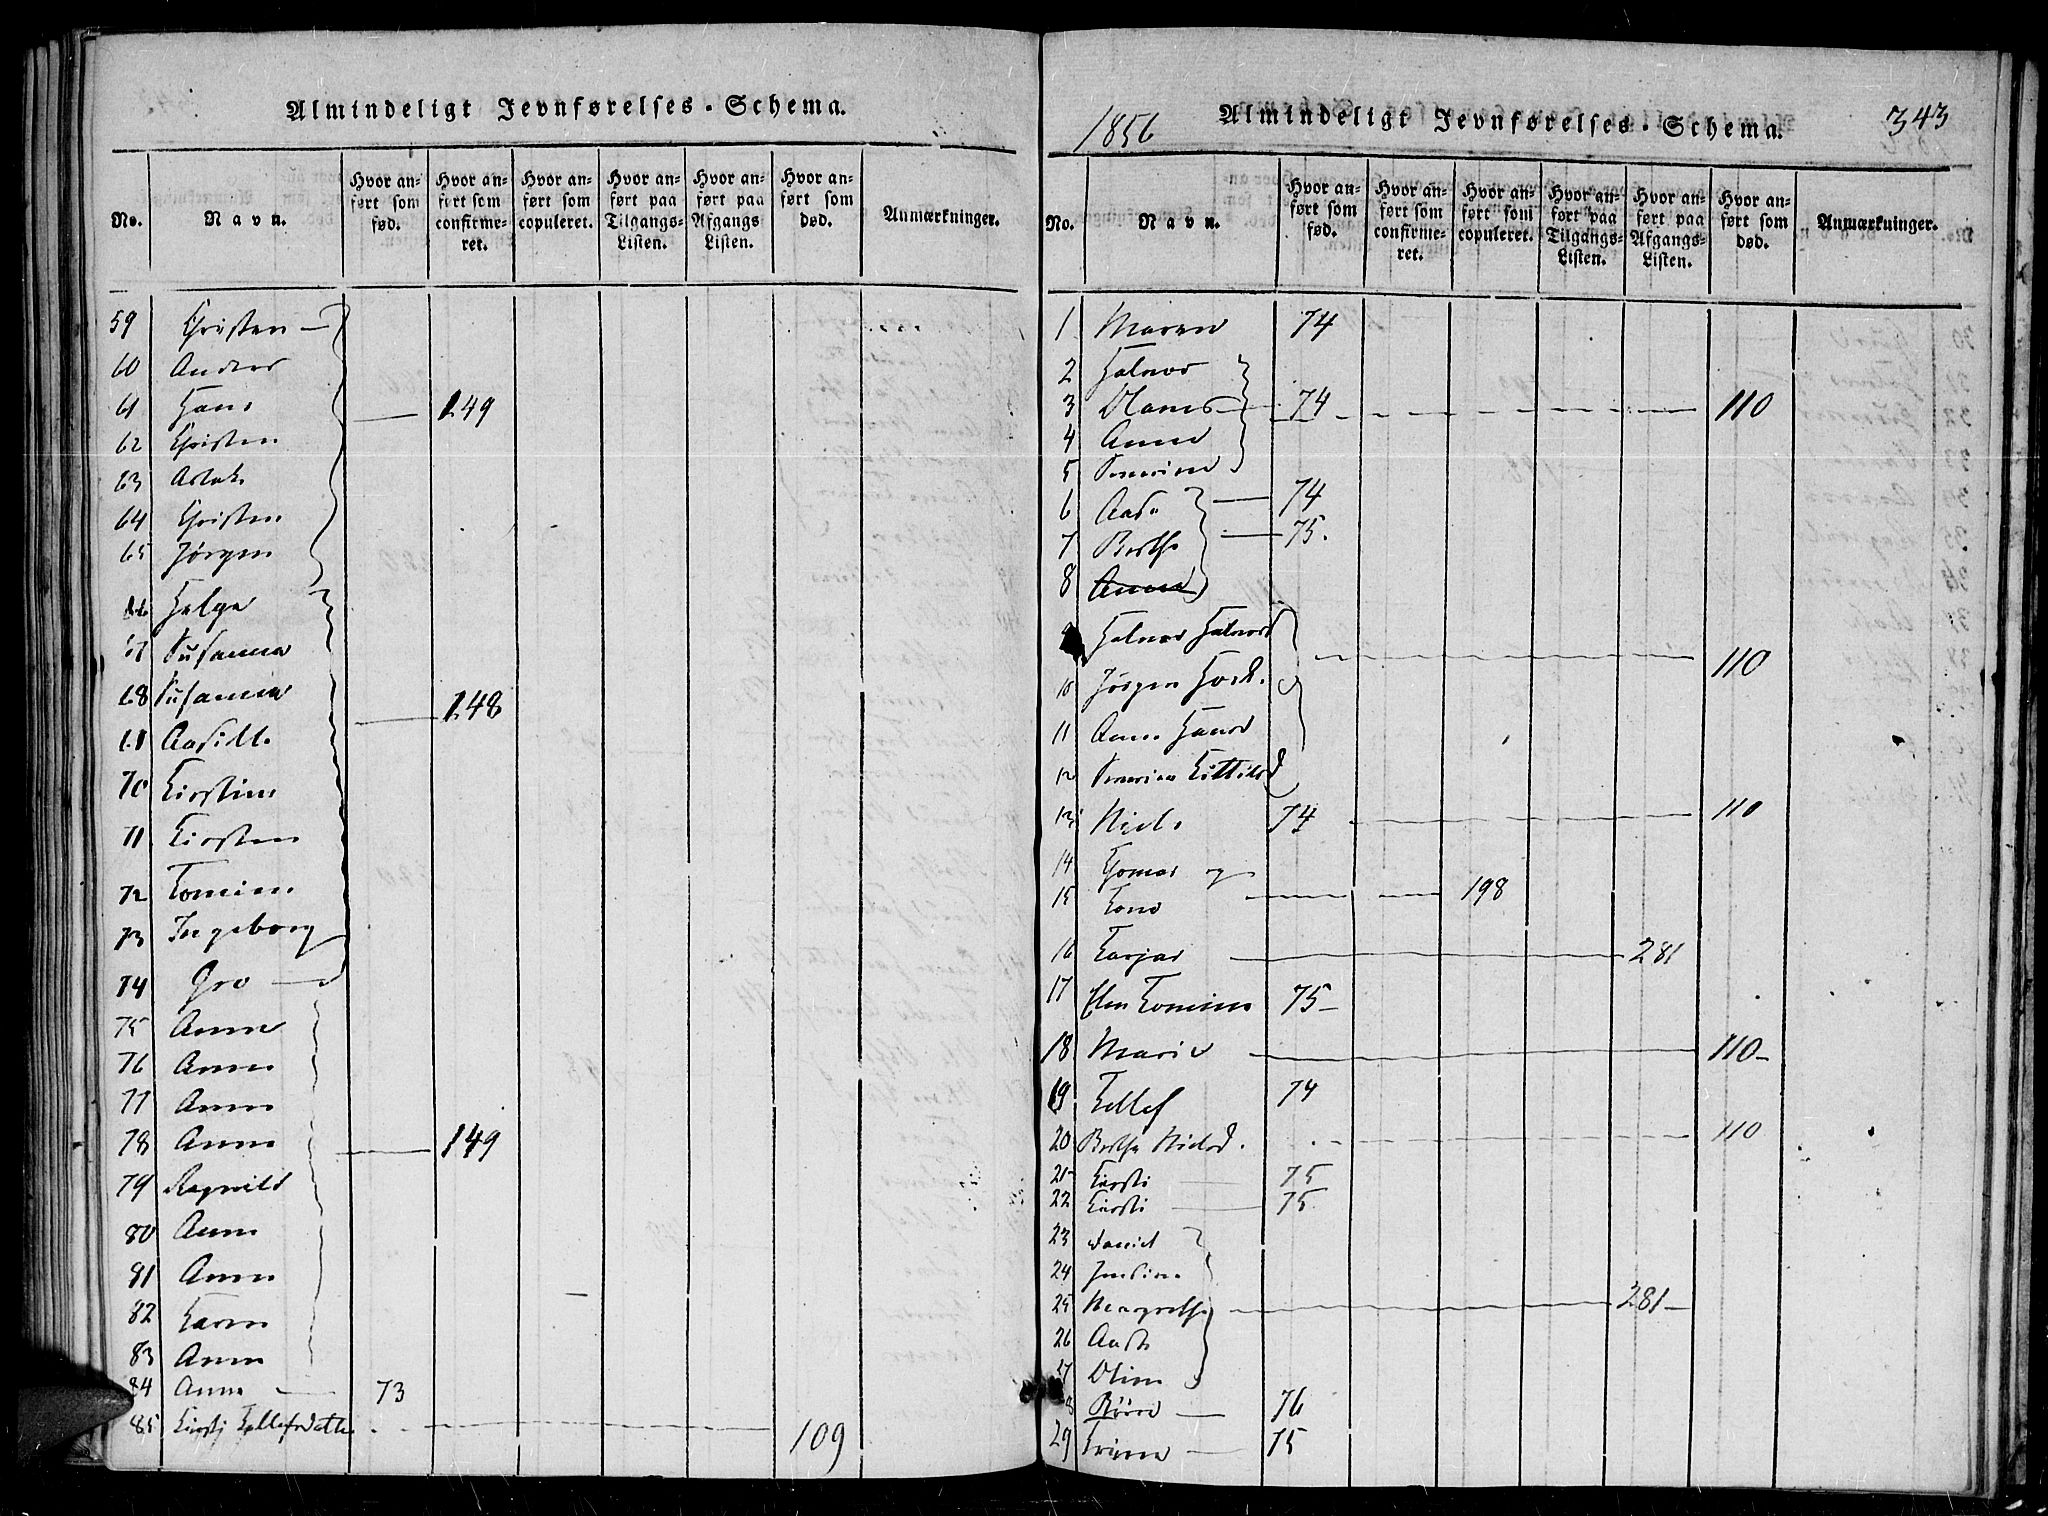 Almindeligt Jevnførelses-Schema.
No. Navn. Hvor anført som fød. Hvor anført som confirmeret. Hvor anført som copuleret. Hvor anført paa Tilgangs-Listen. Hvor anført paa Afgangs Listen. Hvor anført som død. Anmærkninger.
59 Christen
60 Anders
61 Hans 149
62 Christen
63 Aslak
64 Christen
65 Jørgen
66 Helge
67 Susanna
68 Susanna 148
69 Aasill.
70 Kirstine
71 Kirsten
72 Tomine
73 Ingeborg
74 Gro
75 Anne
76 Anne
77 Anne
78 Anne 149
79 Ragnild
80 Anne
81 Anne
82 Karen
83 Anne
84 Anne 73
85 Kirsti Tellefsdatter 109
1856 Almindeligt Jevnførelses-Schema. 343
No. Navn. Hvor anført som fød. Hvor anført som confirmeret. Hvor anført som copuleret. Hvor anført paa Tilgangs-Listen. Hvor anført paa Afgangs-Listen. Hvor anført som død. Anmærkninger.
1 Maren 74
2 Halvor
3 74 110
4 Anne
5
6 Aase 74
7 Berthe 75.
8 Anne
Halvor Halvors
10 Jørgen
11 Anne Hansd
12
13 Niels 74 110
14 Thomas og
15 Tone 198
16 Tarjer 281
17 Elen Tomine 75
18 Marie 110
19 Tellef 74
20 Berthe Nielsd. 110
21 Kirsti 75
22 Kirsti 75
23 Daniel
24
25 Margrethe 281
26
27 Oline
28 76
29 75